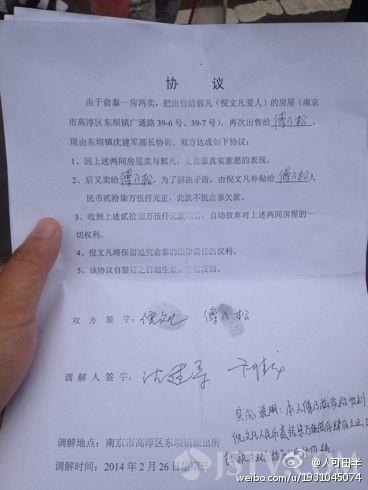 协 议
由于俞泰一房两卖，把出售给郭凡（倪文凡爱人）的房屋（南京
市高淳区东坝镇广通路 39-6 号、39-7 号），再次出售给 傅乃松，
现由东坝镇沈建军部长协调，双方达成如下协议：
1、因上述两间房屋卖与郭凡，是俞泰真实意愿的表现。
2、后又卖给傅乃松，为了解决矛盾，由倪文凡补贴给 傅乃松 人
民币贰拾柒万伍仟元正，此款不抵俞泰欠款。
3、收到上述贰拾柒万伍仟元款项后，自动放弃对上述两间房屋的一
切权利。
4、倪文凡将保留追究俞泰的法律责任的权利。
5、该协议自签订之日起生效，不得反悔。
双 方 签 字： 倪文凡 傅乃松
调 解 人 签 字： 沈建军
实际说明：本人傅乃松实际收到
倪文凡人民币
调解地点： 南京市高淳区东坝镇派出所
调解时间： 2014 年 2 月 26 日星期三
JSTV.COM
@人可田半
weibo.com/u/1931045074